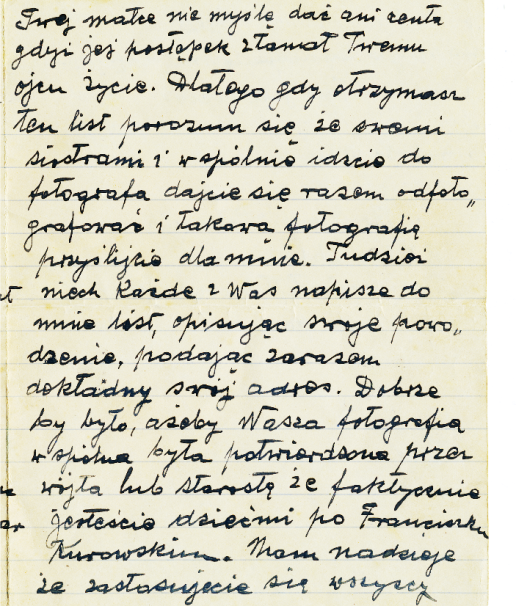 Twej matce nie myślę dać ani centa
gdyż jej postępek złamał Twemu
ojcu życie. Dlatego gdy otrzymasz
ten list porozum się że swemi
siostrami i wspólnie idzcie do
fotografa dajcie się razem odfoto„
grafować i takową fotografię
przyślijcie dla mnie. Tudzież
niech każde z Was napisze do
mnie list, opisując swoje powo„
dzenie, podając zarazem
dokładny swój adres. Dobrze
by było, ażeby Wasza fotografia
wspólna była potwierdzona przez
wójta lub starostę że faktycznie
jesteście dziećmi po Franciszku
Kurowskim. Mam nadzieje
że zastosujecie się wszyscy